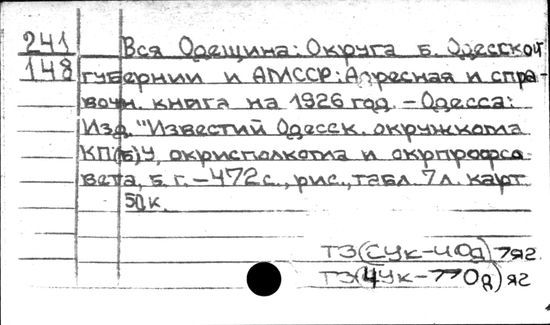 241
148
Вся Одещина: Округа б. Одесской
губернии и АМССР: Адресная и спра-
вочн. книга на 1926 год. – Одесса:
Изд. "Известий Одесск. окружкома
КП(б)У, окрисполкома и окрпрофсо
вета, б. г. – 472 с., рис., табл. 7 л. карт
50 к.
ТЗ(СУк-4Од) 7яг
ТЗ(4Ук-77Од) яг